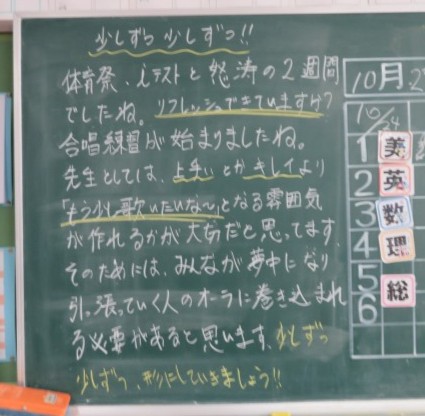 少しずつ 少しずつ!!
体育祭、iテストと怒涛の2週間
でしたね。リフレッシュできていますか?
合唱練習が始まりましたね。
先生としては、上手いとかキレイより
「もう少し歌いたいな〜」となる雰囲気
が作れるかが大切だと思ってます。
そのためには、みんなが夢中になり
引っ張っていく人のオーラに巻き込まれ
る必要があると思います。少しずつ
少しずつ、形にしていきましょう!!
10月2
10/24
1 美
2 英
3 数
4 理
5
6 総